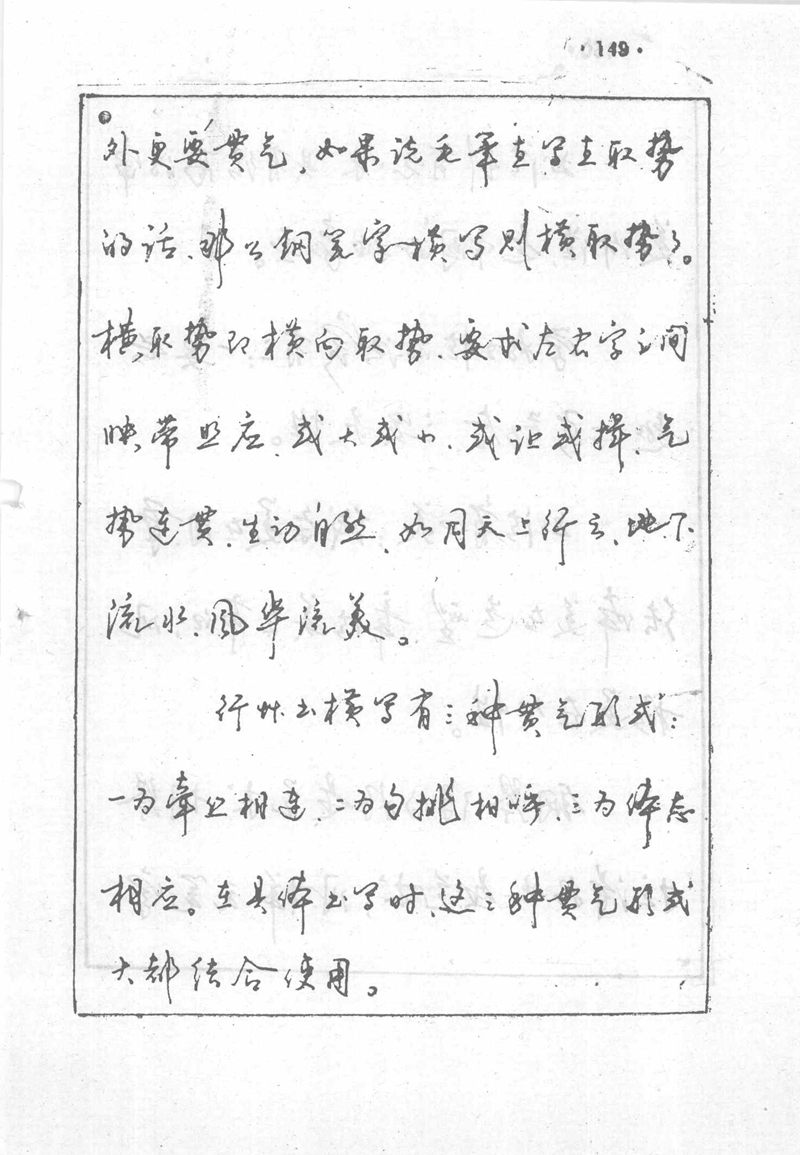 ·149·
外更要贯气,如果说毛笔直写直取势
的话、那么钢笔字横写则横取势了。
横取势即横向取势、要求左右字之间
映带照应、或大或小、或让或揖、气
势连贯、生动自然、如同天上行云、地下
流水、风华流美。
行草书横写有三种贯气形式:
一为牵丝相连、二为勾挑相呼、三为体态
相应。在具体书写时、这三种贯气形式
大都结合使用。